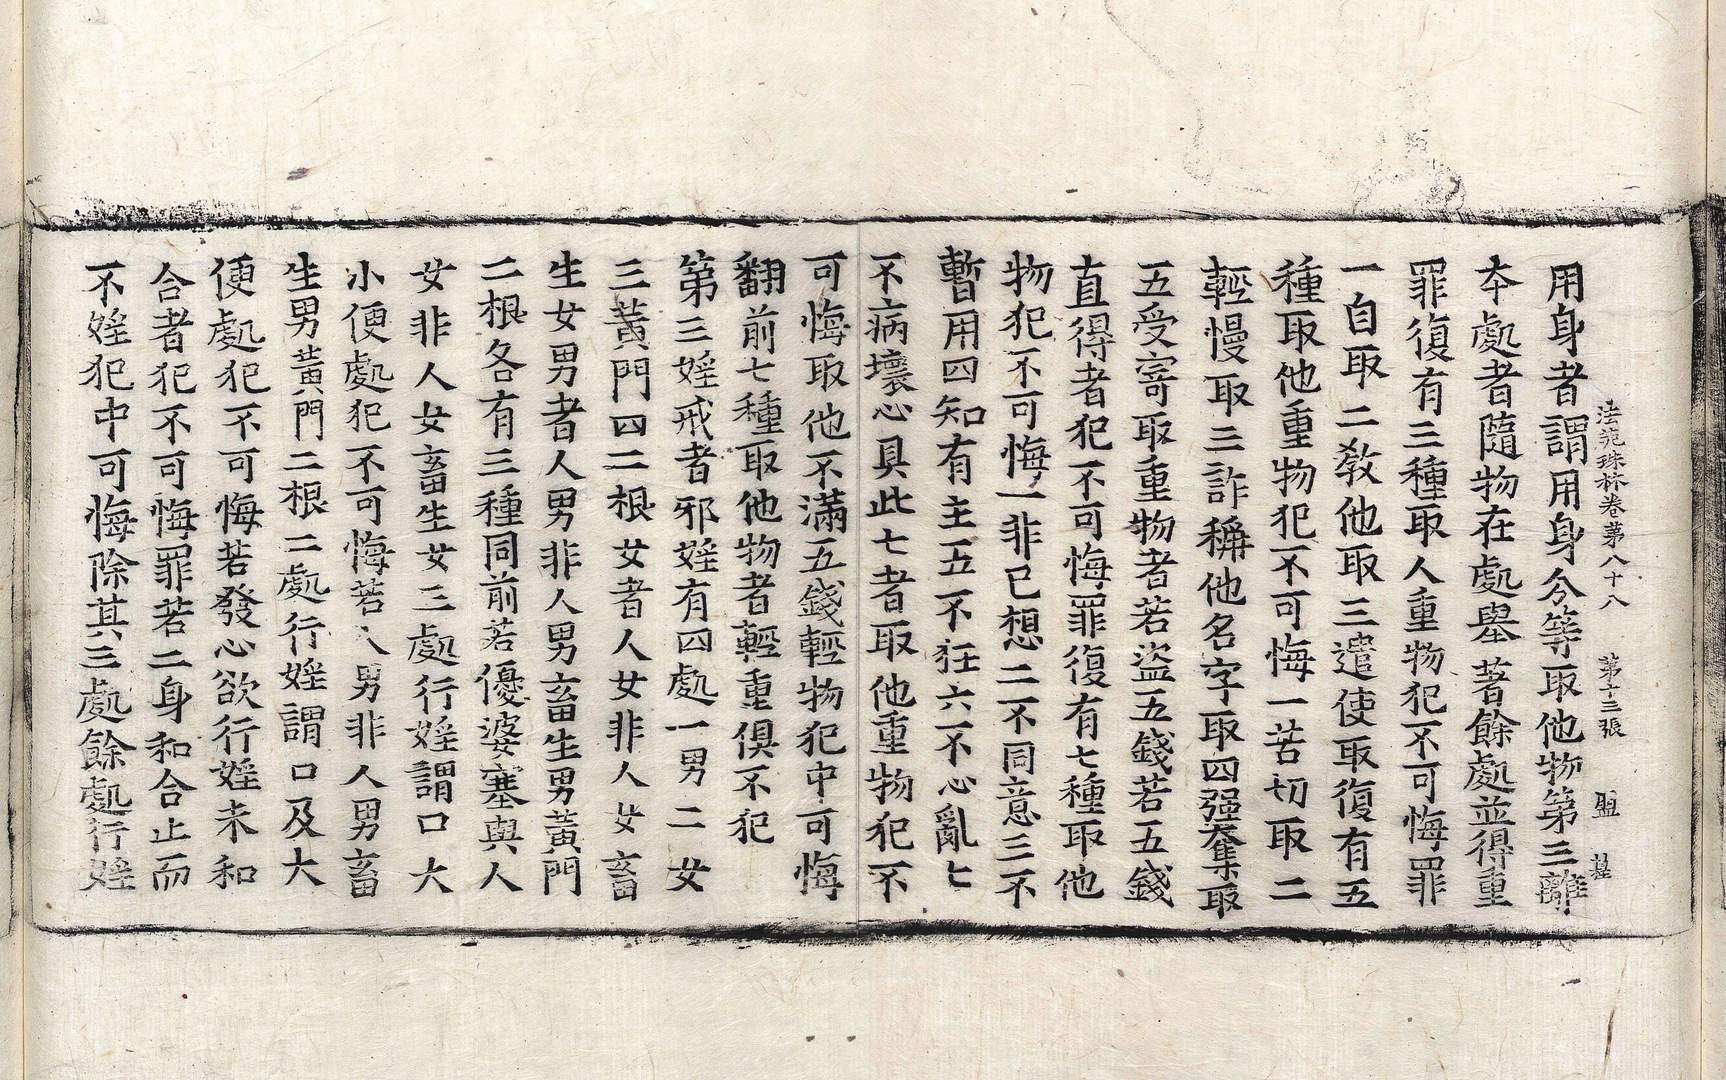 法苑珠林卷第八十八 第十三張 盥
用身者謂用身分等取他物第三離
本處者隨物在處舉著餘處並得重
罪復有三種取人重物犯不可悔罪
一自取二教他取三遣使取復有五
種取他重物犯不可悔一苦切取二
輕慢取三詐稱他名字取四强奪取
五受寄取重物者若盜五錢若五錢
直得者犯不可悔罪復有七種取他
物犯不可悔一非己想二不同意三不
暫用四知有主五不狂六不心亂七
不病壞心具此七者取他重物犯不
可悔取他不滿五錢輕物犯中可悔
翻前七種取他物者輕重俱不犯
第三婬戒者邪婬有四處一男二女
三黃門四二根女者人女非人女畜
生女男者人男非人男畜生男黃門
二根各有三種同前若優婆塞與人
女非人女畜生女三處行婬謂口大
小便處犯不可悔若人男非人男畜
生男黃門二根二處行婬謂口及大
便處犯不可悔若發心欲行婬未和
合者犯不可悔罪若二身和合止而
不婬犯中可悔除其三處餘處行婬